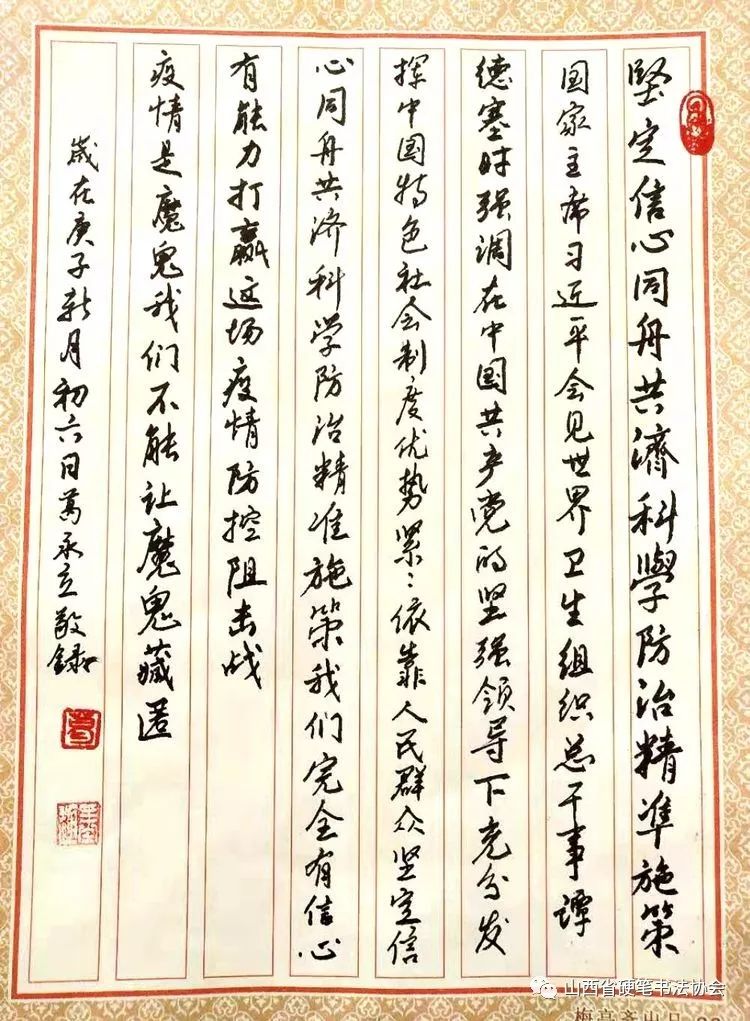 坚定信心同舟共濟科學防治精準施策
国家主席习近平会见世界卫生组织总干事谭
德塞时强调在中国共产党的坚强领导下充分发
挥中国特色社会制度优势紧:依靠人民群众坚定信
心同舟共济科学防治精准施策我们完全有信心
有能力打赢这场疫情防控阻击战
疫情是魔鬼我们不能让魔鬼藏匿
歲在庚子新月初六日葛承立敬録
山西省硬笔书法协会